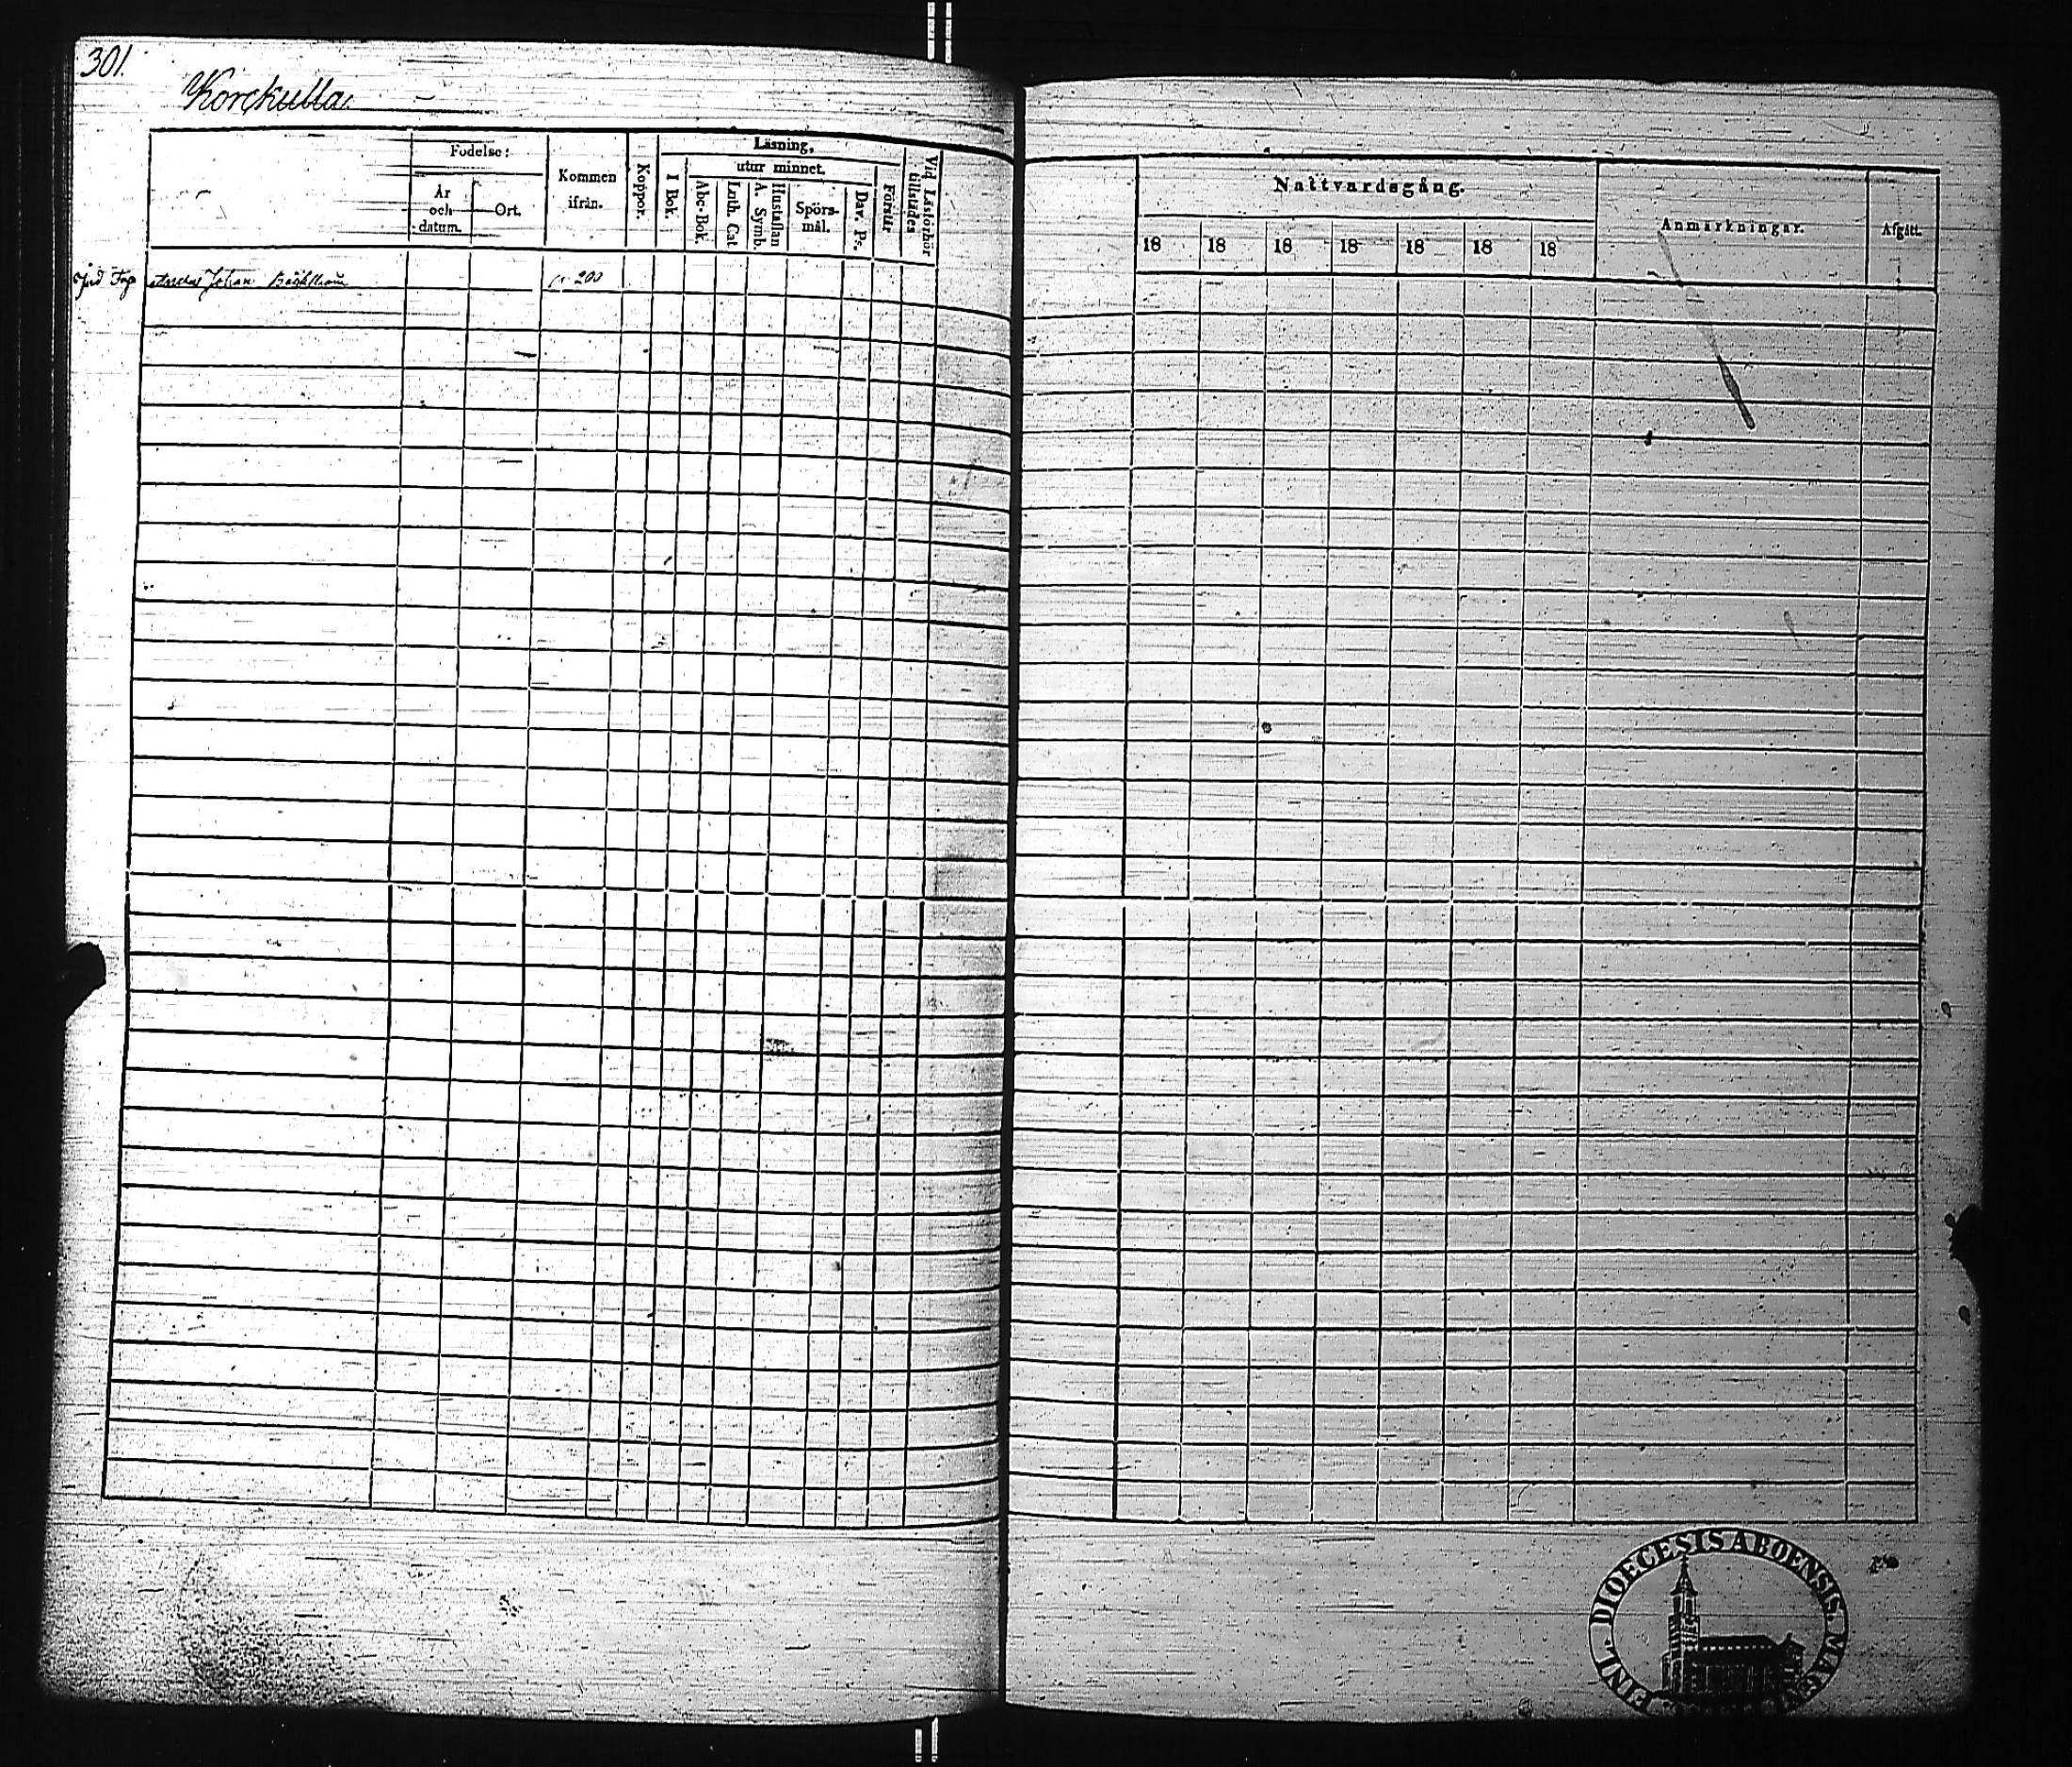 301.
Korckulla
Födelse:
År och datum.
Ort.
Kommen ifrån.
Koppor.
Läsning,
utur minnet.
I Bok.
Abc-Bok.
Luth. Cat
Hustaflan A. Symb.
Spörs-mål.
Dav. Ps.
Förstår
Vid Läsförhör tillstädes
Johan
200
Nattvardsgång.
18 18 18 18 18 18 18
Anmärkningar.
Afgått.
FINL. DIOECESIS ABOENSIS. MAGN.